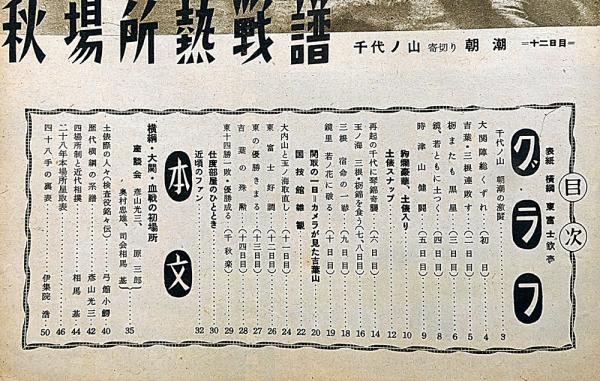 秋場所熱戦譜
千代ノ山 寄切り 朝潮 =十二日目=
目次
表紙 横綱 東富士欽壱
グラフ
千代ノ山 朝潮の激闘……3
大関陣総くずれ(初日)……4
吉葉・三根連敗す(二日目)……5
栃またも黒星(三日目)……6
鏡、若ともに土つく(四日目)……8
時津山健闘(五日目)……9
絢爛豪華、土俵入り……10
土俵スナップ……12
再起の千代に琴錦奇襲(六日目)……14
玉ノ海 三根・栃錦を食う(七、八日目)……16
三根 宿命の一撃(九日目)……18
鏡里 若ノ花に破る(十日目)……19
関取の一日=カメラが見た吉葉山……20
国技館雑観……22
大内山と玉ノ海取直し(十一日目)……24
東富士好調(十二日目)……26
東の優勝きまる(十三日目)……27
吉葉の殊勲(十四日目)……28
東十四勝一敗・優勝成る(千秋楽)……29
仕度部屋のひととき……30
近頃のファン……32
本文
横綱・大関・血戦の初場所
座談会 彦山光三、原三郎
奥村忠雄、司会相馬基……35
土俵際の人々(検査役銘々伝)……弓館小鰐……40
歴代横綱の系譜……彦山光三……42
四場所制と近代相撲……相馬基……44
二十八年本場所星取表……46
四十八手の裏表……伊集院浩……50